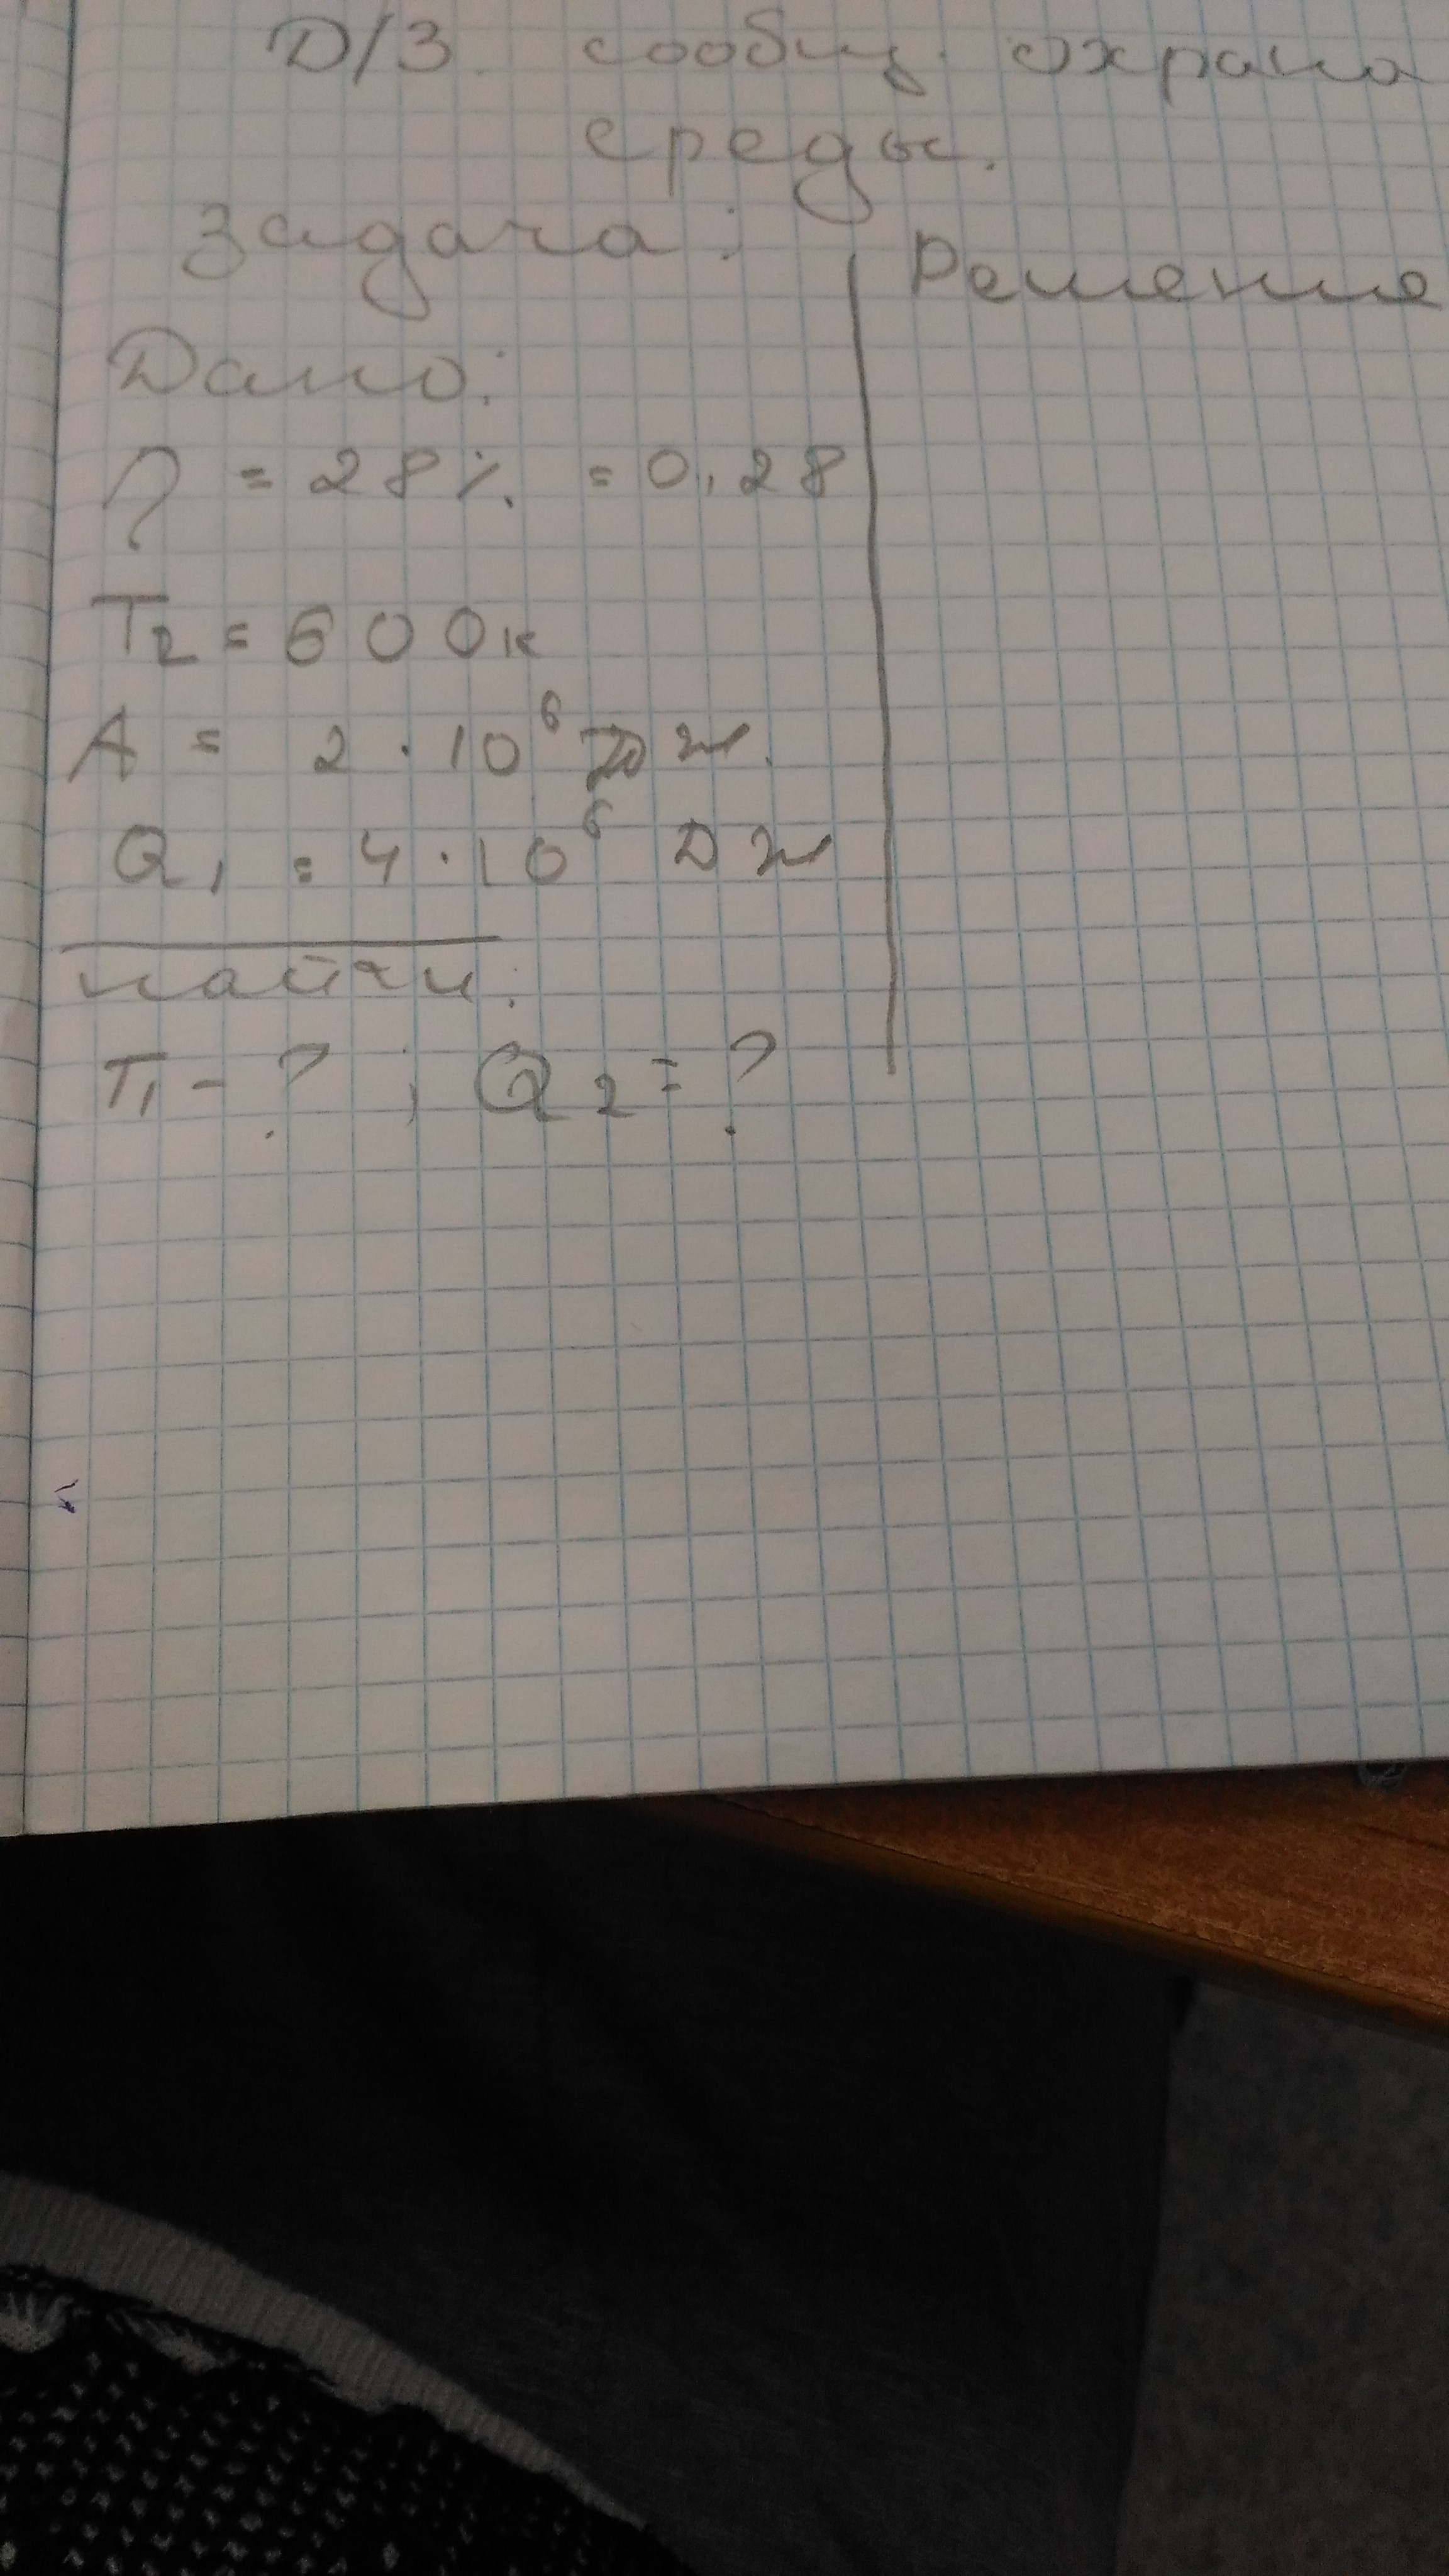 Д/З. сообщ. охрана
среды.
Задача:
Решение
Дано:
η = 28% = 0,28
T₂ = 600к
A = 2 · 10⁶ Дж.
Q₁ = 4 · 10⁶ Дж
найти:
T₁ - ? ; Q₂ = ?